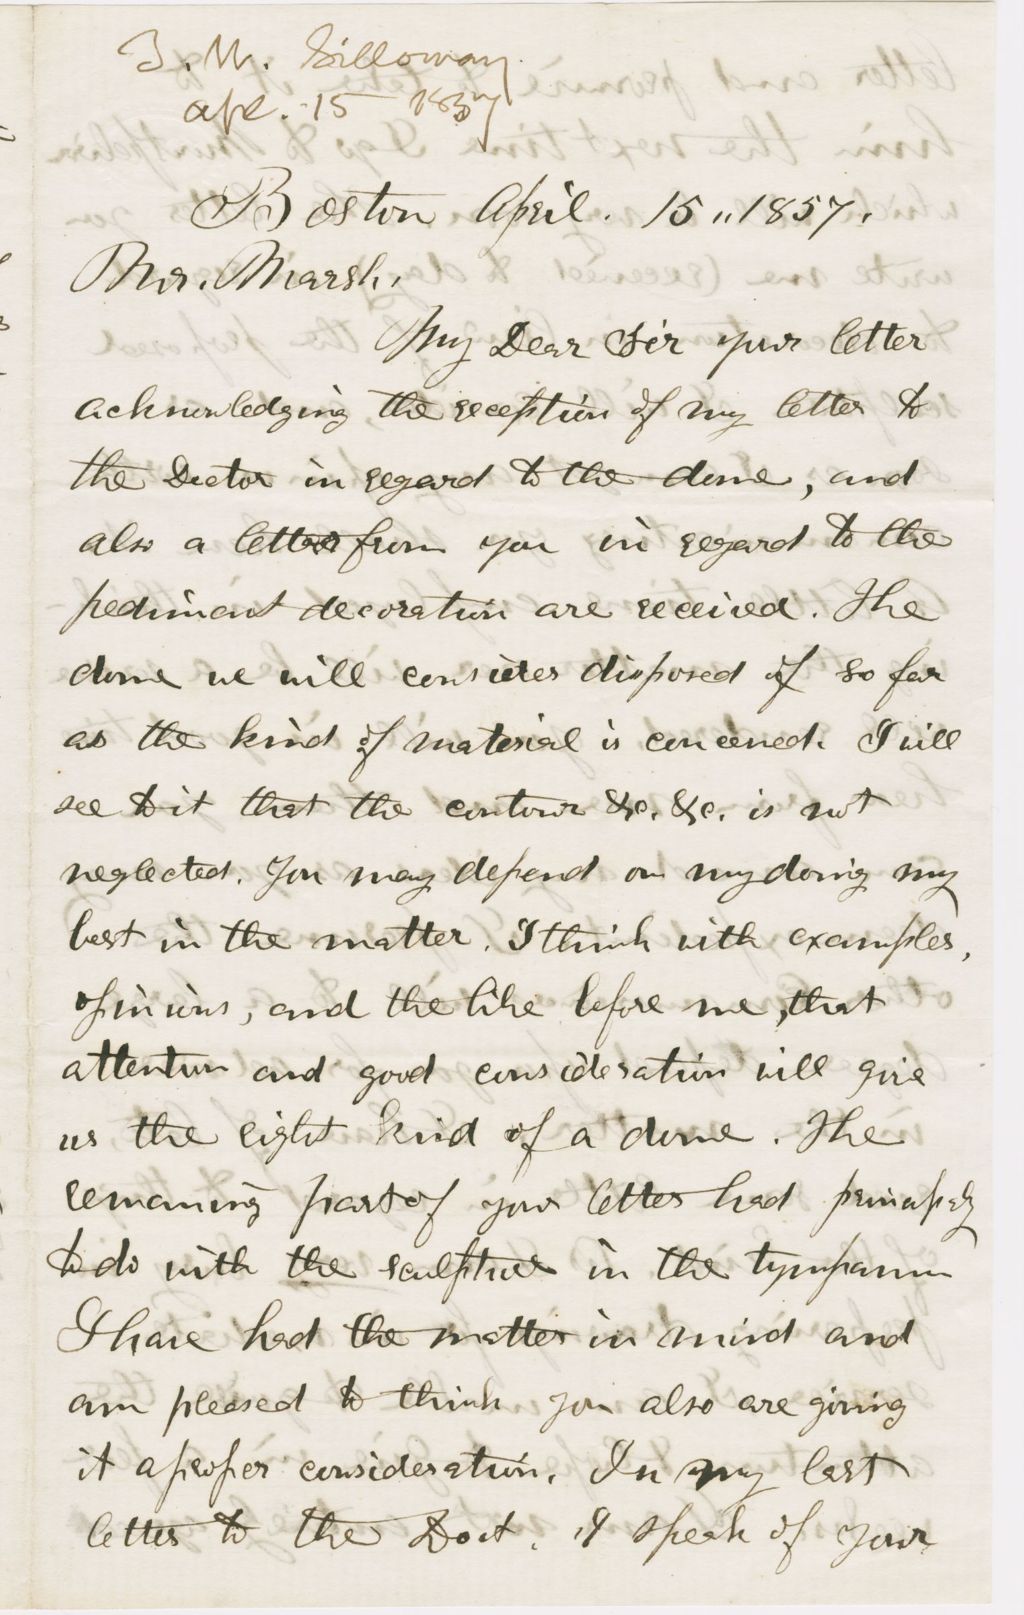 T. W. Silloway.
Apr. 15 1857
Boston April. 15,, 1857.
Mr. Marsh,
My Dear Sir your letter
acknowledging the reception of my letter to
the Doctor in regard to the dome, and
also a letter from you in regard to the
pediment decoration are received. The
dome we will consider disposed of so far
as the kind of material is concerned. I will
see to it that the contour &c. &c. is not
neglected. You may depend on my doing my
best in the matter. I think with examples,
opinions, and the like before me, that
attention and good consideration will give
us the right kind of a dome. The
remaining part of your letter had principaly
to do with the sculpture in the tympanum
I have had the matter in mind and
am pleased to think you also are giving
it a proper consideration. In my last
letter to the Doct. I speak of your